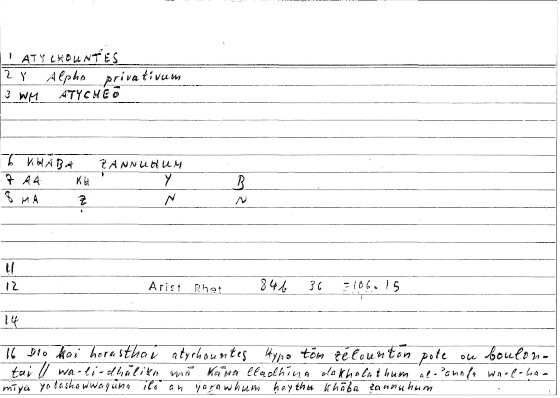 1 ATYCHOUNTES
2 Y Alpha privativum
3 WM ATYCHEŌ
6 KHĀBA ẒANNUHUM
7 AA KH Y B
8 MA Ẓ N N
11
12 Arist Rhet 84b 36 =106.15
14
16 Dio kai horasthai atychountes Hypo tōn zēlountōn pote ou boulon-
tai // wa-li-dhālika mā kāna lladhīna dakhalathum al-'anafa wa-l-ḥa-
mīya yatashawwaqūna ilā an yarawhum ḥaythu khāba ẓannuhum